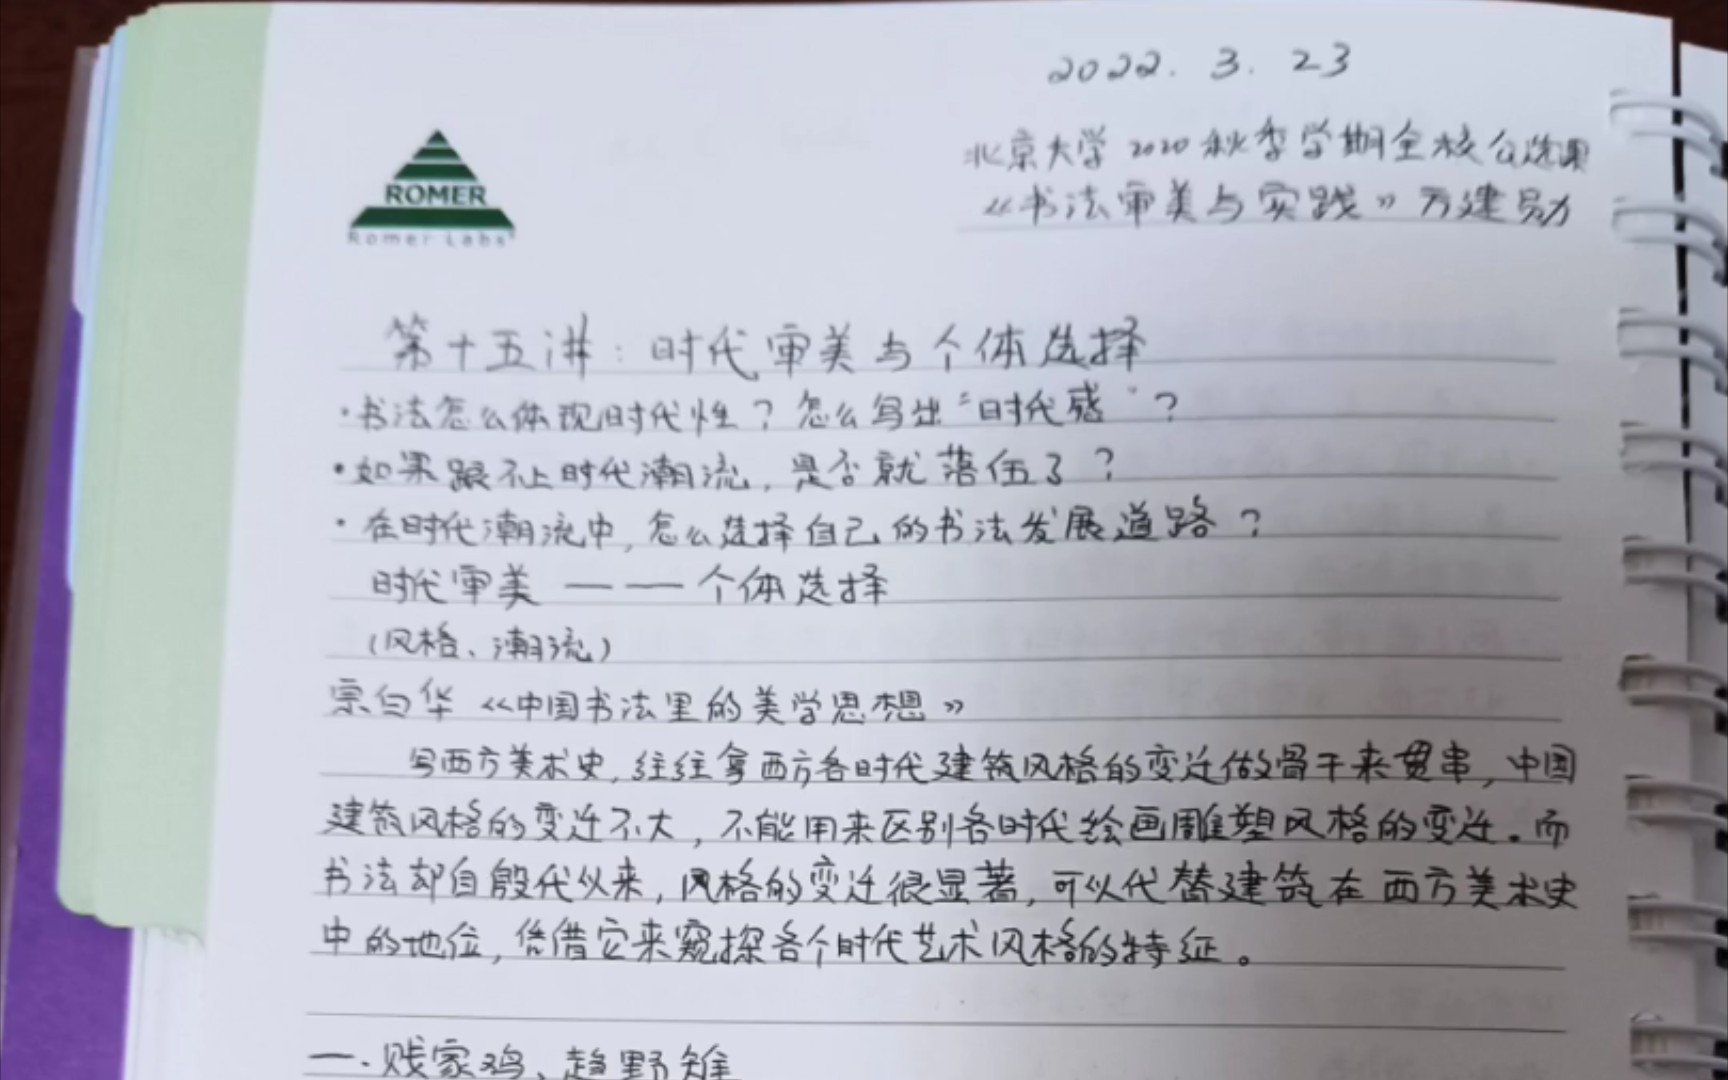 2022. 3. 23
北京大学 2020 秋季学期全校公选课
《书法审美与实践》方建勋
ROMER
Romer Labs®
第十五讲：时代审美与个体选择
·书法怎么体现时代性？怎么写出“时代感”？
·如果跟不上时代潮流，是否就落伍了？
·在时代潮流中，怎么选择自己的书法发展道路？
时代审美 —— 个体选择
（风格、潮流）
宗白华《中国书法里的美学思想》
写西方美术史，往往拿西方各时代建筑风格的变迁做骨干来贯串，中国
建筑风格的变迁不大，不能用来区别各时代绘画雕塑风格的变迁。而
书法却自殷代以来，风格的变迁很显著，可以代替建筑在西方美术史
中的地位，凭借它来窥探各个时代艺术风格的特征。
一.贱家鸡、趋野雉